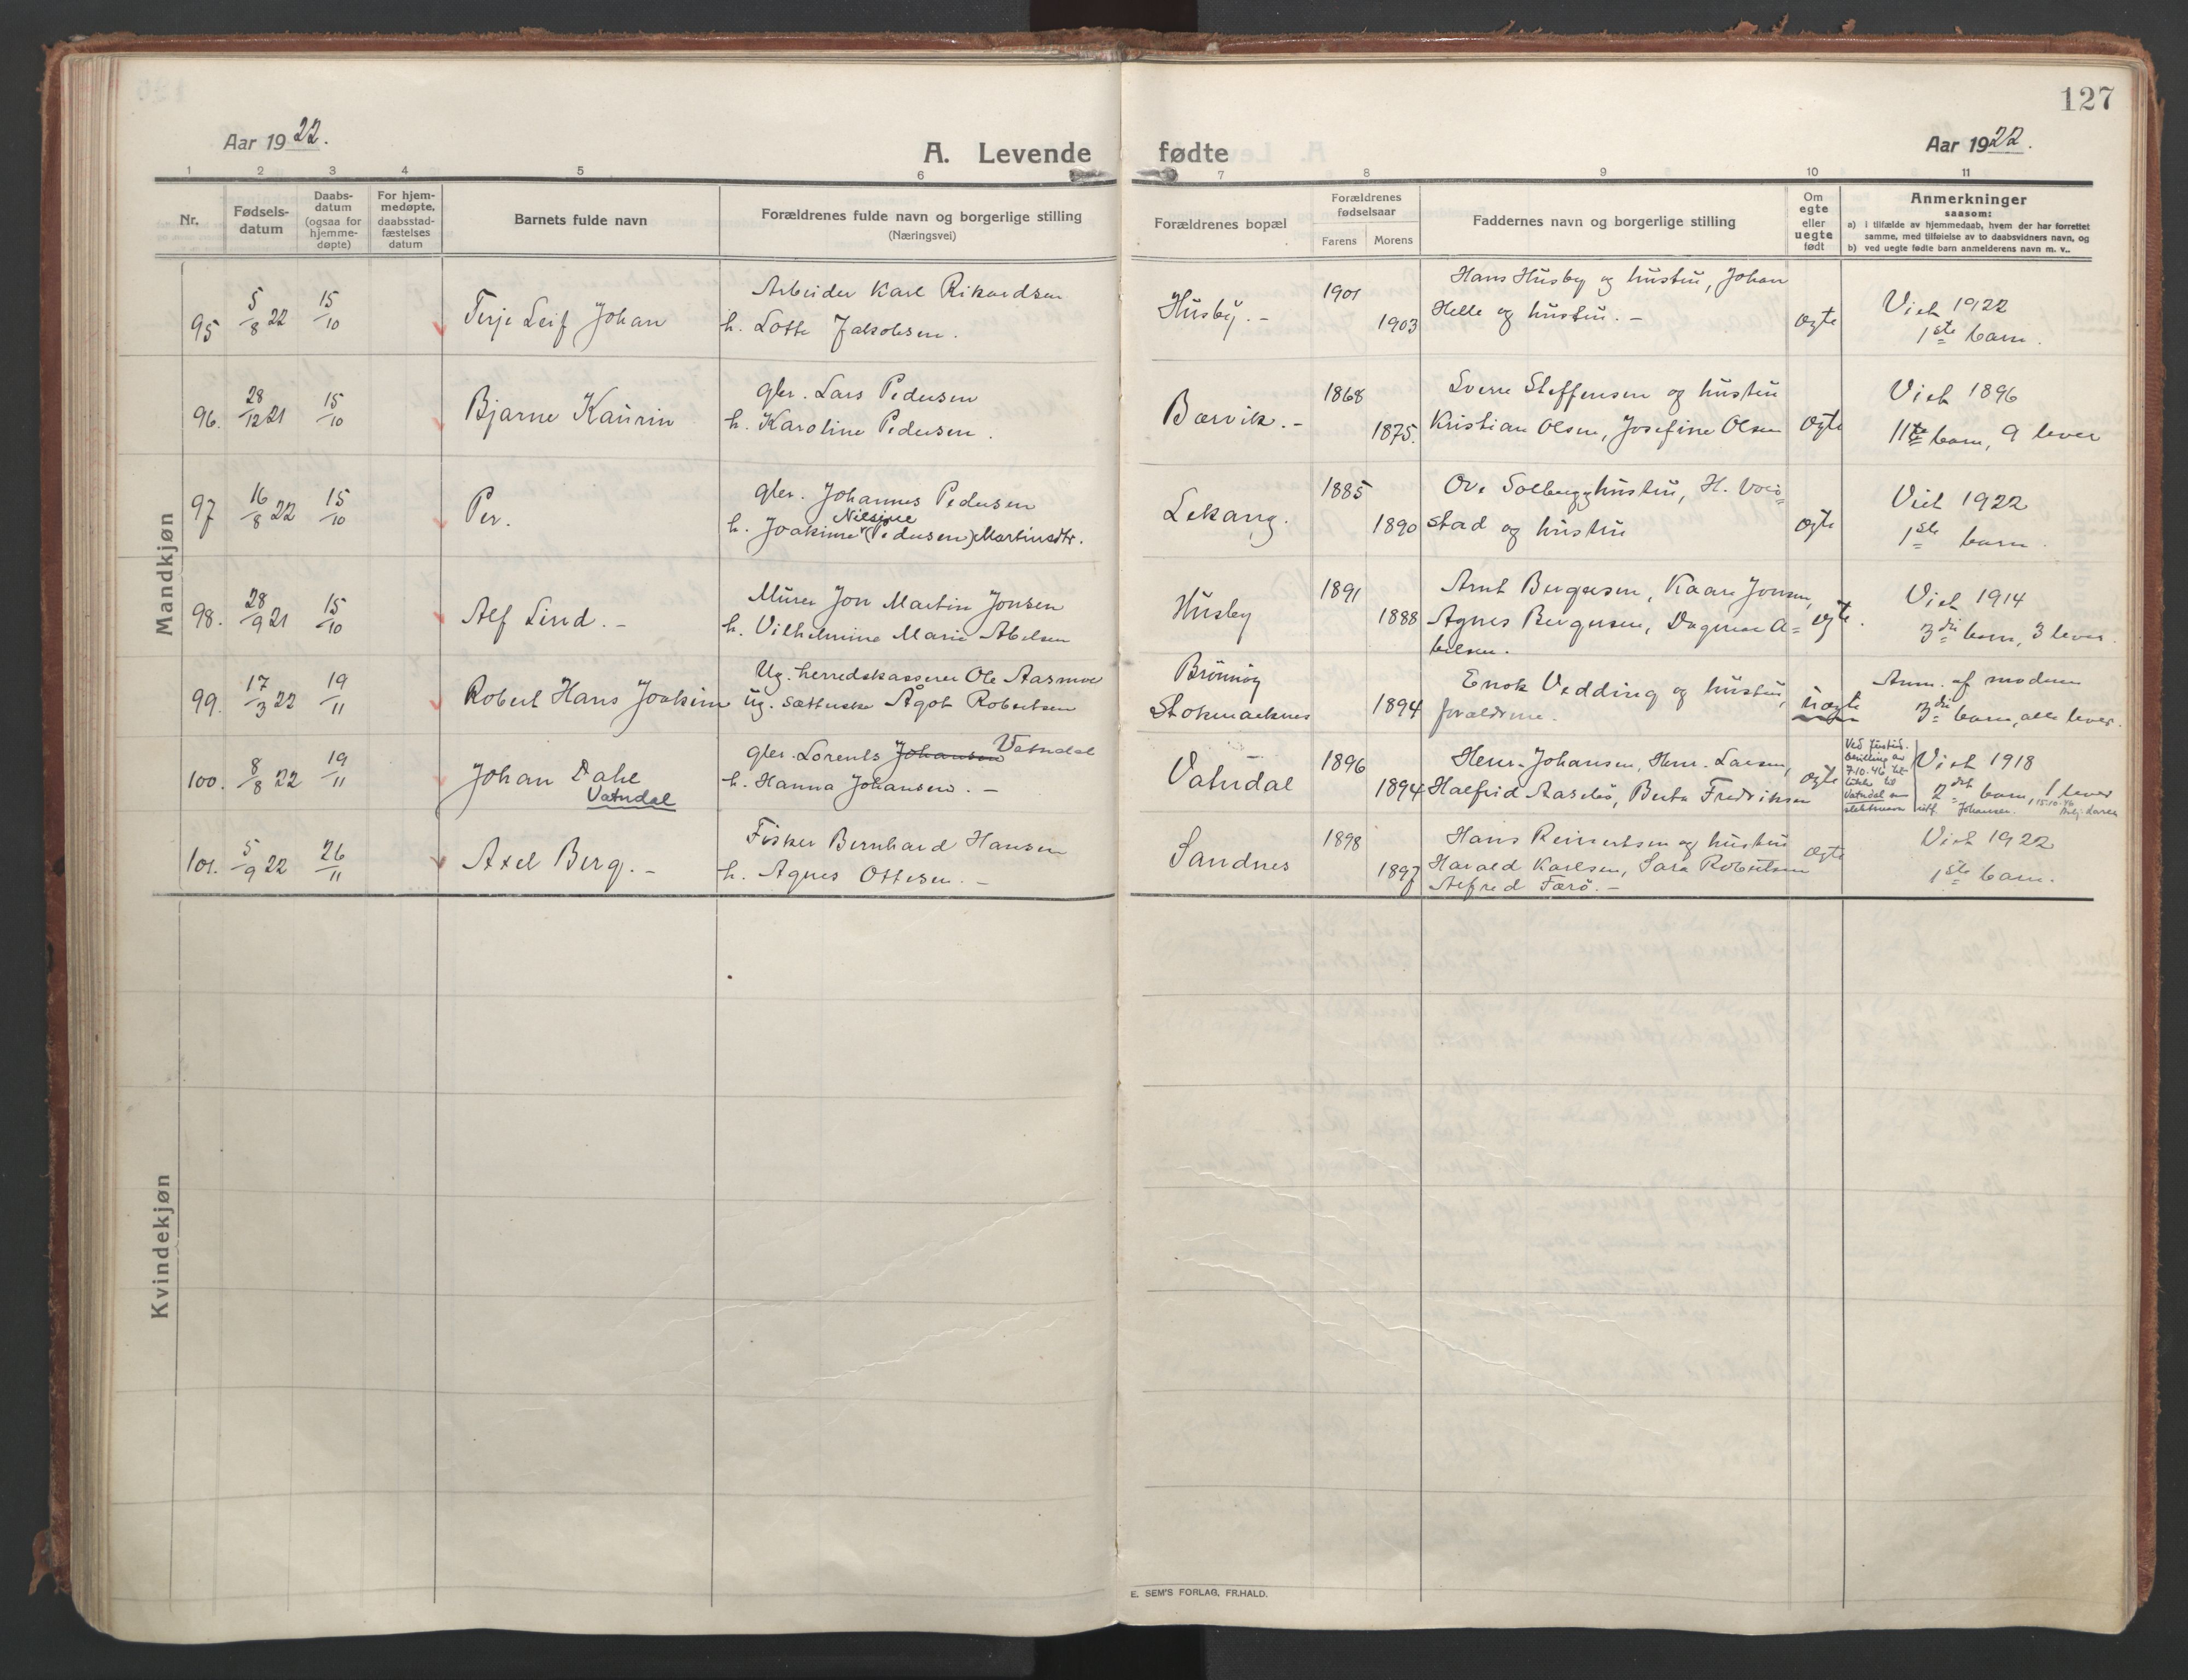 127
Aar 1922.
A. Levende fødte
Aar 1922.
1 2 3 4 5 6 7 8 9 10 11
Nr.
Fødsels-
datum
Daabs-
datum
(ogsaa for
hjemme-
døpte)
For hjem-
medøpte.
daabsstad-
fæstelses
datum
Barnets fulde navn
Forældrenes fulde navn og borgerlige stilling
(Næringsvei)
Forældrenes bopæl
Forældrenes
fødselsaar
Farens Morens
Faddernes navn og borgerlige stilling
Om
egte
eller
uegte
født
Anmerkninger
saasom:
a) i tilfælde av hjemmedaab, hvem der har forrettet
samme, med tilføielse av to daabsvidners navn, og
b) ved uegte fødte barn anmelderens navn m. v..
Mandkjøn
95 5/8 22 15/10 Terje Leif Johan
Arbeider Karl Rikardsen
h. Lotte Jakobsen.
Husby.-
1901
1903
Hans Husby og hustru, Johan
Helle og hustru.-
ægte
Viet 1922
1ste barn.
96. 28/12 21 15/10 Bjarne Kaurin
gbr. Lars Pedersen
h. Karoline Pedersen.
Børvik.-
1868
1875.
Sverre Steffensen og hustru
Kristian Olsen, Josefine Olsen
ægte
Viet 1896
11te barn, 9 lever
97 16/8 22 15/10 Per.
gbr. Johannes Pedersen
Nilsine
h. Joakime (Pedersen) Martinsdtr.
Lekang.
1885
1890
Ove Solberg og hustru, H.
stad og hustru
ægte
Viet 1922
1ste barn.
98. 28/9 21 15/10 Alf Lind.-
Murer Jon Martin Jonsen
h. Vilhelmine Marie Abelsen
Husby
1891
1888
Arnt Bergersen, Kaare Jonsen,
Agnes Bergersen, Dagmar A=
belsen.
ægte.
Viet 1914
3die barn, 3 lever.
99. 17/3 22 19/11 Robert Hans Joakim
Ug. herredskasserer Ole Aasmoe
ug. Ågot Robertsen
Brönnöy
Stokmarknes
1894
Enok Vedding og hustru,
forældrene.
uægte
Anm. af moderen
3die barn, alle lever.
100. 8/8 22 19/11 Johan Dahl
Vatndal
gbr. Lorents Johansen Vatndal
h. Hanna Johansen.-
Vatndal
1896
1894
Henr. Johansen, Henr. Larsen,
Halfrid Aaselø, Berta Fredriksen
ægte
Ved
bevilling av
7.10.46
til
Vatndal som
slektsnavn
istf. Johansen. 15.10.46
Viet 1918
2det barn, 1 lever
101. 5/9 22 26/11 Axel Berg.-
Fisker Bernhard Hansen
h. Agnes Ottesen.-
Sandnes
1898
1897
Hans Reinertsen og hustru
Harald Karlsen, Sara Robertsen
Alfred Færö.-
ægte
Viet 1922
1ste barn.
Kvindekjøn
E. SEM'S FORLAG, FR.HALD.